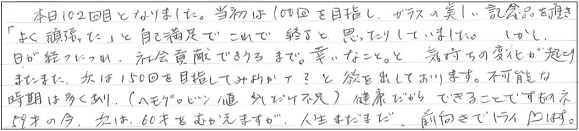 本日102回目となりました。当初は100回を目指し、ガラスの美しい記念品を頂き
「よく頑張った」と自己満足でこれで終了と思ったりしていました。しかし、
日が経つにつれ、社会貢献できうるまで。幸いなこと。と気持ちの変化が起こり
またまた、次は150回を目指してみようかナ?と欲を出しております。不可能な
時期は多くあり、(ヘモグロビン値 少しだけ不足)健康だから できることですものネ
59才の今、次は、60才をむかえますが、人生まだまだ、前向きでトライ